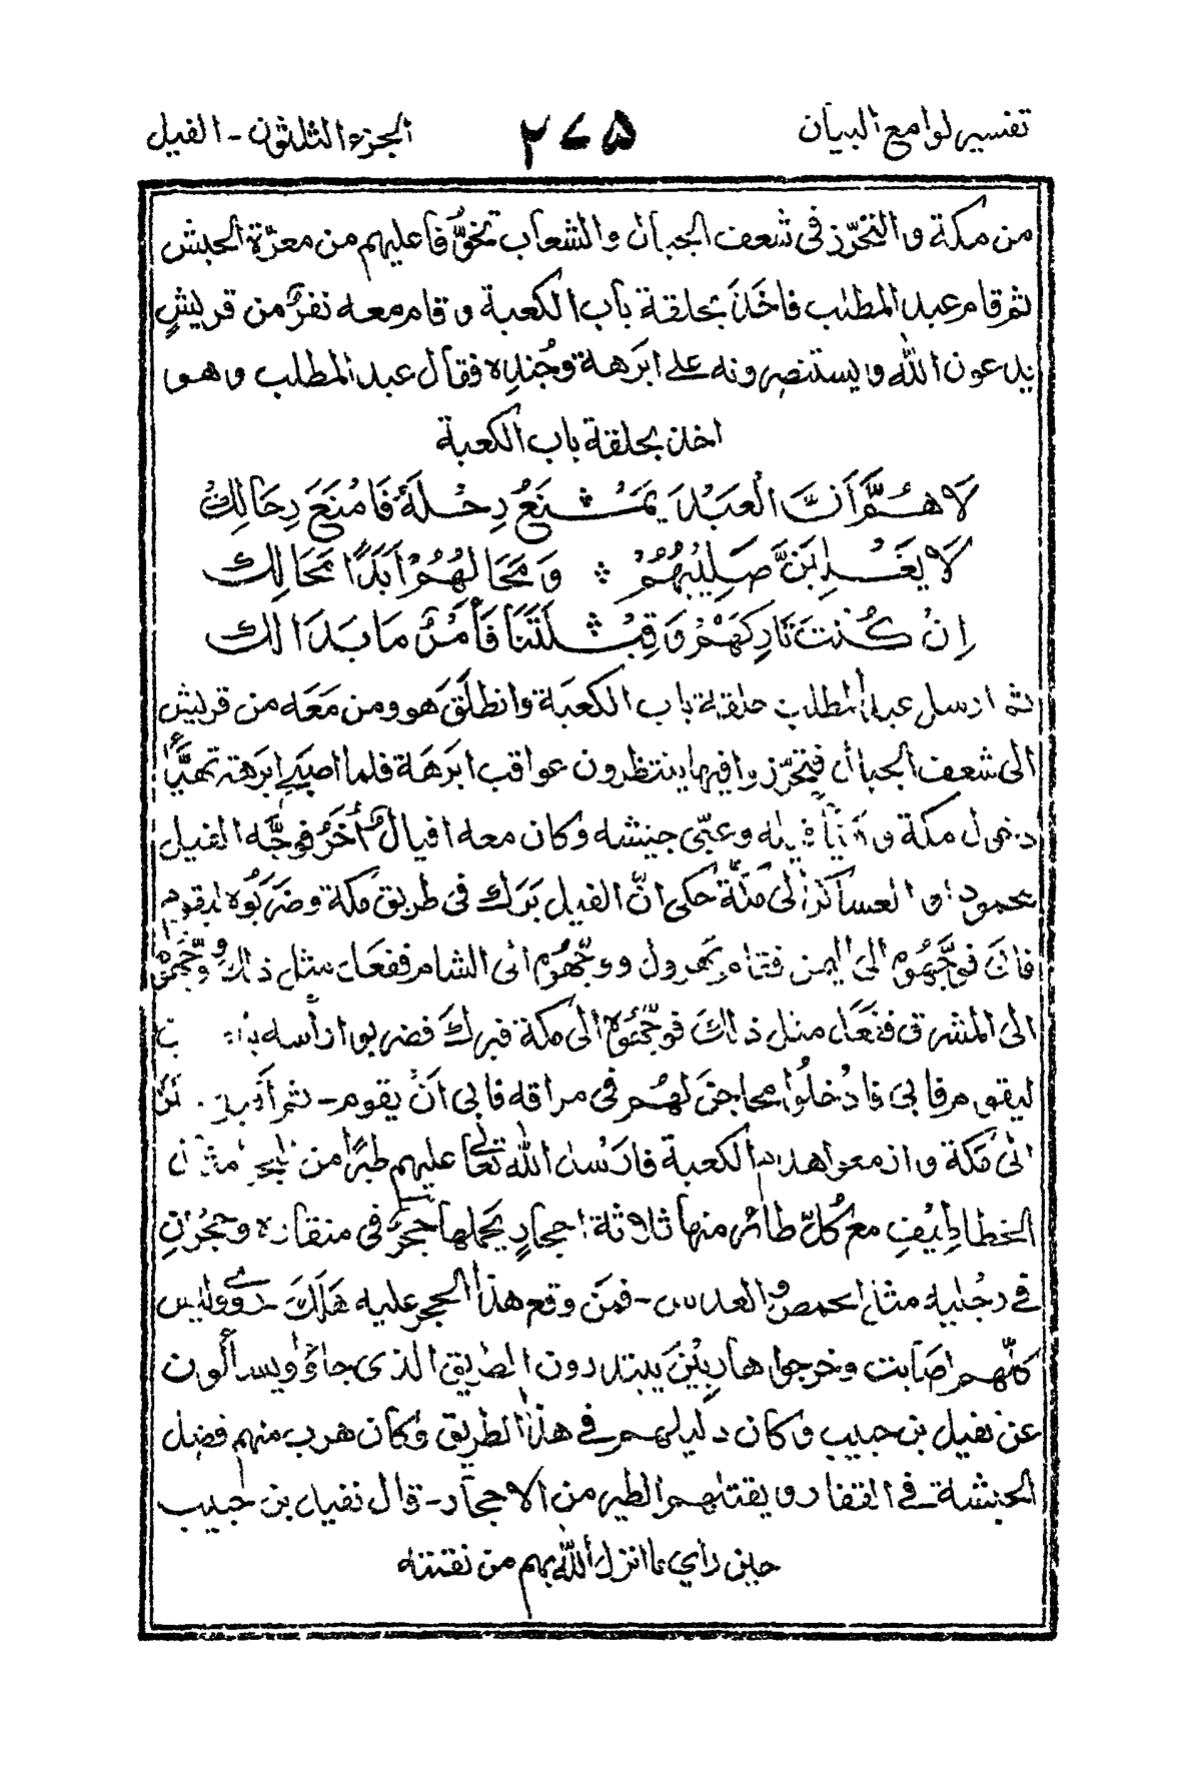 تفسير لوامع البيان
٢٧٥
الجزء الثلثون - الفيل
من مكة و التحرّز فى شعف الجبال والشعاب تخوُّفا عليهم من معرّة الحبش
ثم قام عبد المطلب فاخَذَ بحلقة باب الكعبة و قام معه نفرٌ من قريشٍ
يدعون الله ويستنصرونه على ابَرهة وجُندِه فقال عبد المطلب وهو
اخذ بحلقة باب الكعبة
لَا هُمَّ أَنَّ الْعَبْدَ يَمْنَعُ رِحْلَهُ فَامْنَعَ رِحَالِكْ
لَا يَغْلِبَنَّ صَلِيْبُهُمْ ❖ وَمَحَالُهُمْ اَبَدًا مَحَالِكْ
اِنْ كُنْتَ تَارِكَهُمْ وَ قِبْلَتَنَا فَأْمُرْ مَا بَدَا لَكْ
ثم ارسل عبد المطلب حلقة باب الكعَبة وانطلَقَ هو ومن مَعَه من قريش
الى شعف الجبال فتحرّزوا فيها ينتظرون عواقب ابرَهَة فلما اصبح ابرَهة تهيَّأ
دخول مكة و فيله وعبّى جيشه وكان معه افيال أُخَرُ فوجَّه الفيل
محمود او العساكر الى مكّة حكى انّ الفيل بَرَك فى طريق مكة وضَرَبُوه ليقوم
فابى فوجَّهُوه الى اليمن فقام يَهرول ووجّهُوه الى الشام ففعل مثل ذلك ووجّهوه
الى المشرق ففَعَل مثل ذلكَ فوجّهُوه الى مكة فبركَ فضربوا رأسه
ليقوم فابى فادْخلُوا محاجنَ لهُم فى مراقه فابى انْ يقوم - ثم
الى مَكة و ازمعوا هدم الكعبة فارْسل الله تعالى عليهم طيرًا من البحر مثال
الخطاطِيْفِ معَ كُلّ طائر منها ثلاثة احجارٍ يحملها حجرٌ فى منقاره وحجرَانِ
فى رجُليه مثل الحمص والعدس - فمَن وقع هذا الحجر عليه هَلَكَ - وليس
كلّهم اصَابت وخرجوا هارِبيْنَ يبتدرون الطريق الذى جاؤا ويسألون
عن نفيل بن حبيب وكان دليلهم فى هذا الطريق وكان هرب منهم فضل
الحبشة فى القفار ويقتلهم الطير من الاحجار - قال نفيل بن حبيب
حين رأي ما انزل الله بهم من نقمته